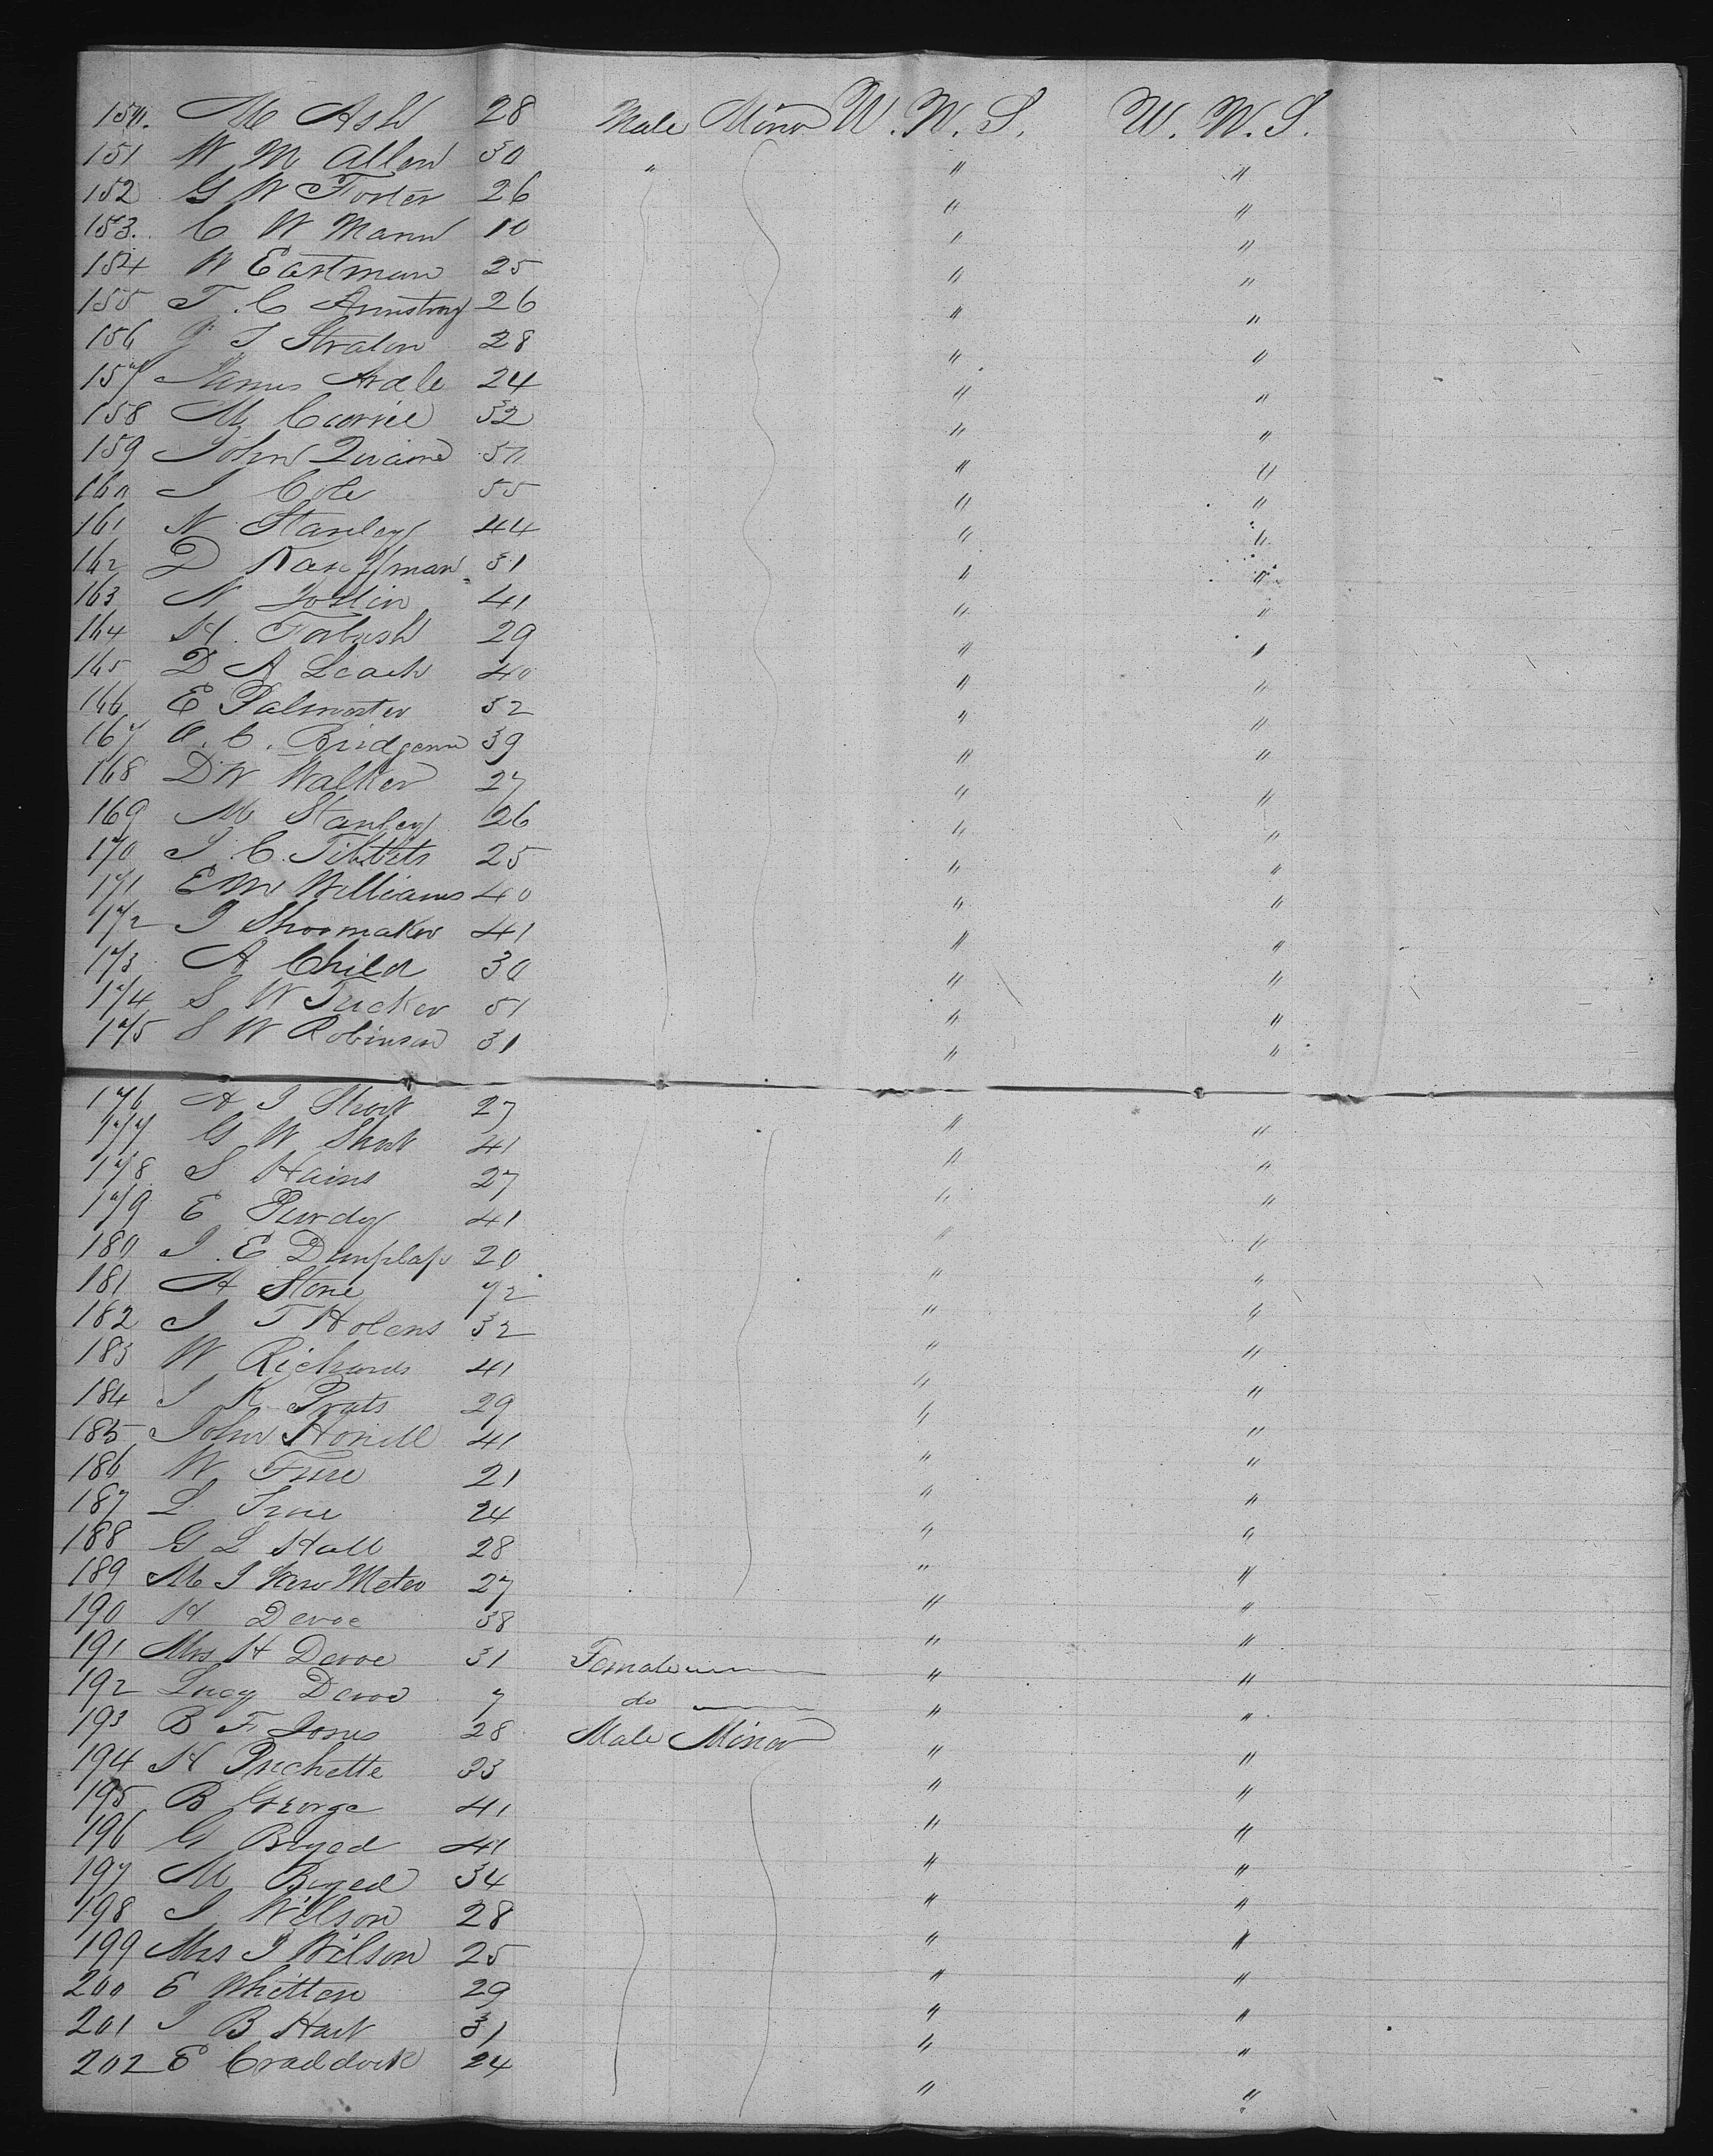 150. M Ash 28 Male Minor U. W. S. U. W. S.
151 W M Allen 30 " " "
152 G W Forter 26 " "
153. C W Mann 10 " "
154 W Eastman 25 " "
155 T. C Armstrong 26 " "
156 J T Straton 28 " "
157 James Ardle 24 " "
158 M Currie 32 " "
159 John Zwaine 50 " "
160 J Cole 55 " "
161 N Stanley 44 " "
162 D Kauffman 31 " "
163 N Joslin 41 " "
164 H. Forbush 29 " "
165 D A Leach 40 " "
166 E Palmater 32 " "
167 A. C. Bridgem 39 " "
168 D W Walker 27 " "
169 M Stanley 26 " "
170 J. C. Tibbits 25 " "
171 E M Williams 40 " "
172 J Shoomaker 41 " "
173 A Child 30 " "
174 S W Tucker 51 " "
175 S W Robinson 31 " "
176 A J Short 27 " "
177 G W Short 41 " "
178 S Hains 27 " "
179 E Purdy 41 " "
180 J. E Dunplap 20 " "
181 A Stone 42 " "
182 J T Holens 32 " "
183 W Richards 41 " "
184 J K Prats 29 " "
185 John Honill 41 " "
186 W Fure 21 " "
187 L True 24 " "
188 G L Hall 28 " "
189 M J Van Meter 27 " "
190 H Devoe 38 " "
191 Mrs H Devoe 31 Female " "
192 Lucy Devoe 7 do " "
193 B F Jones 28 Male Minor " "
194 H Puchette 23 " "
195 B George 41 " "
196 G Bryed 41 " "
197 M Bryed 34 " "
198 J Wilson 28 " "
199 Mrs J Wilson 25 " "
200 E Whitten 29 " "
201 J B Hart 31 " "
202 E Craddock 24 " "